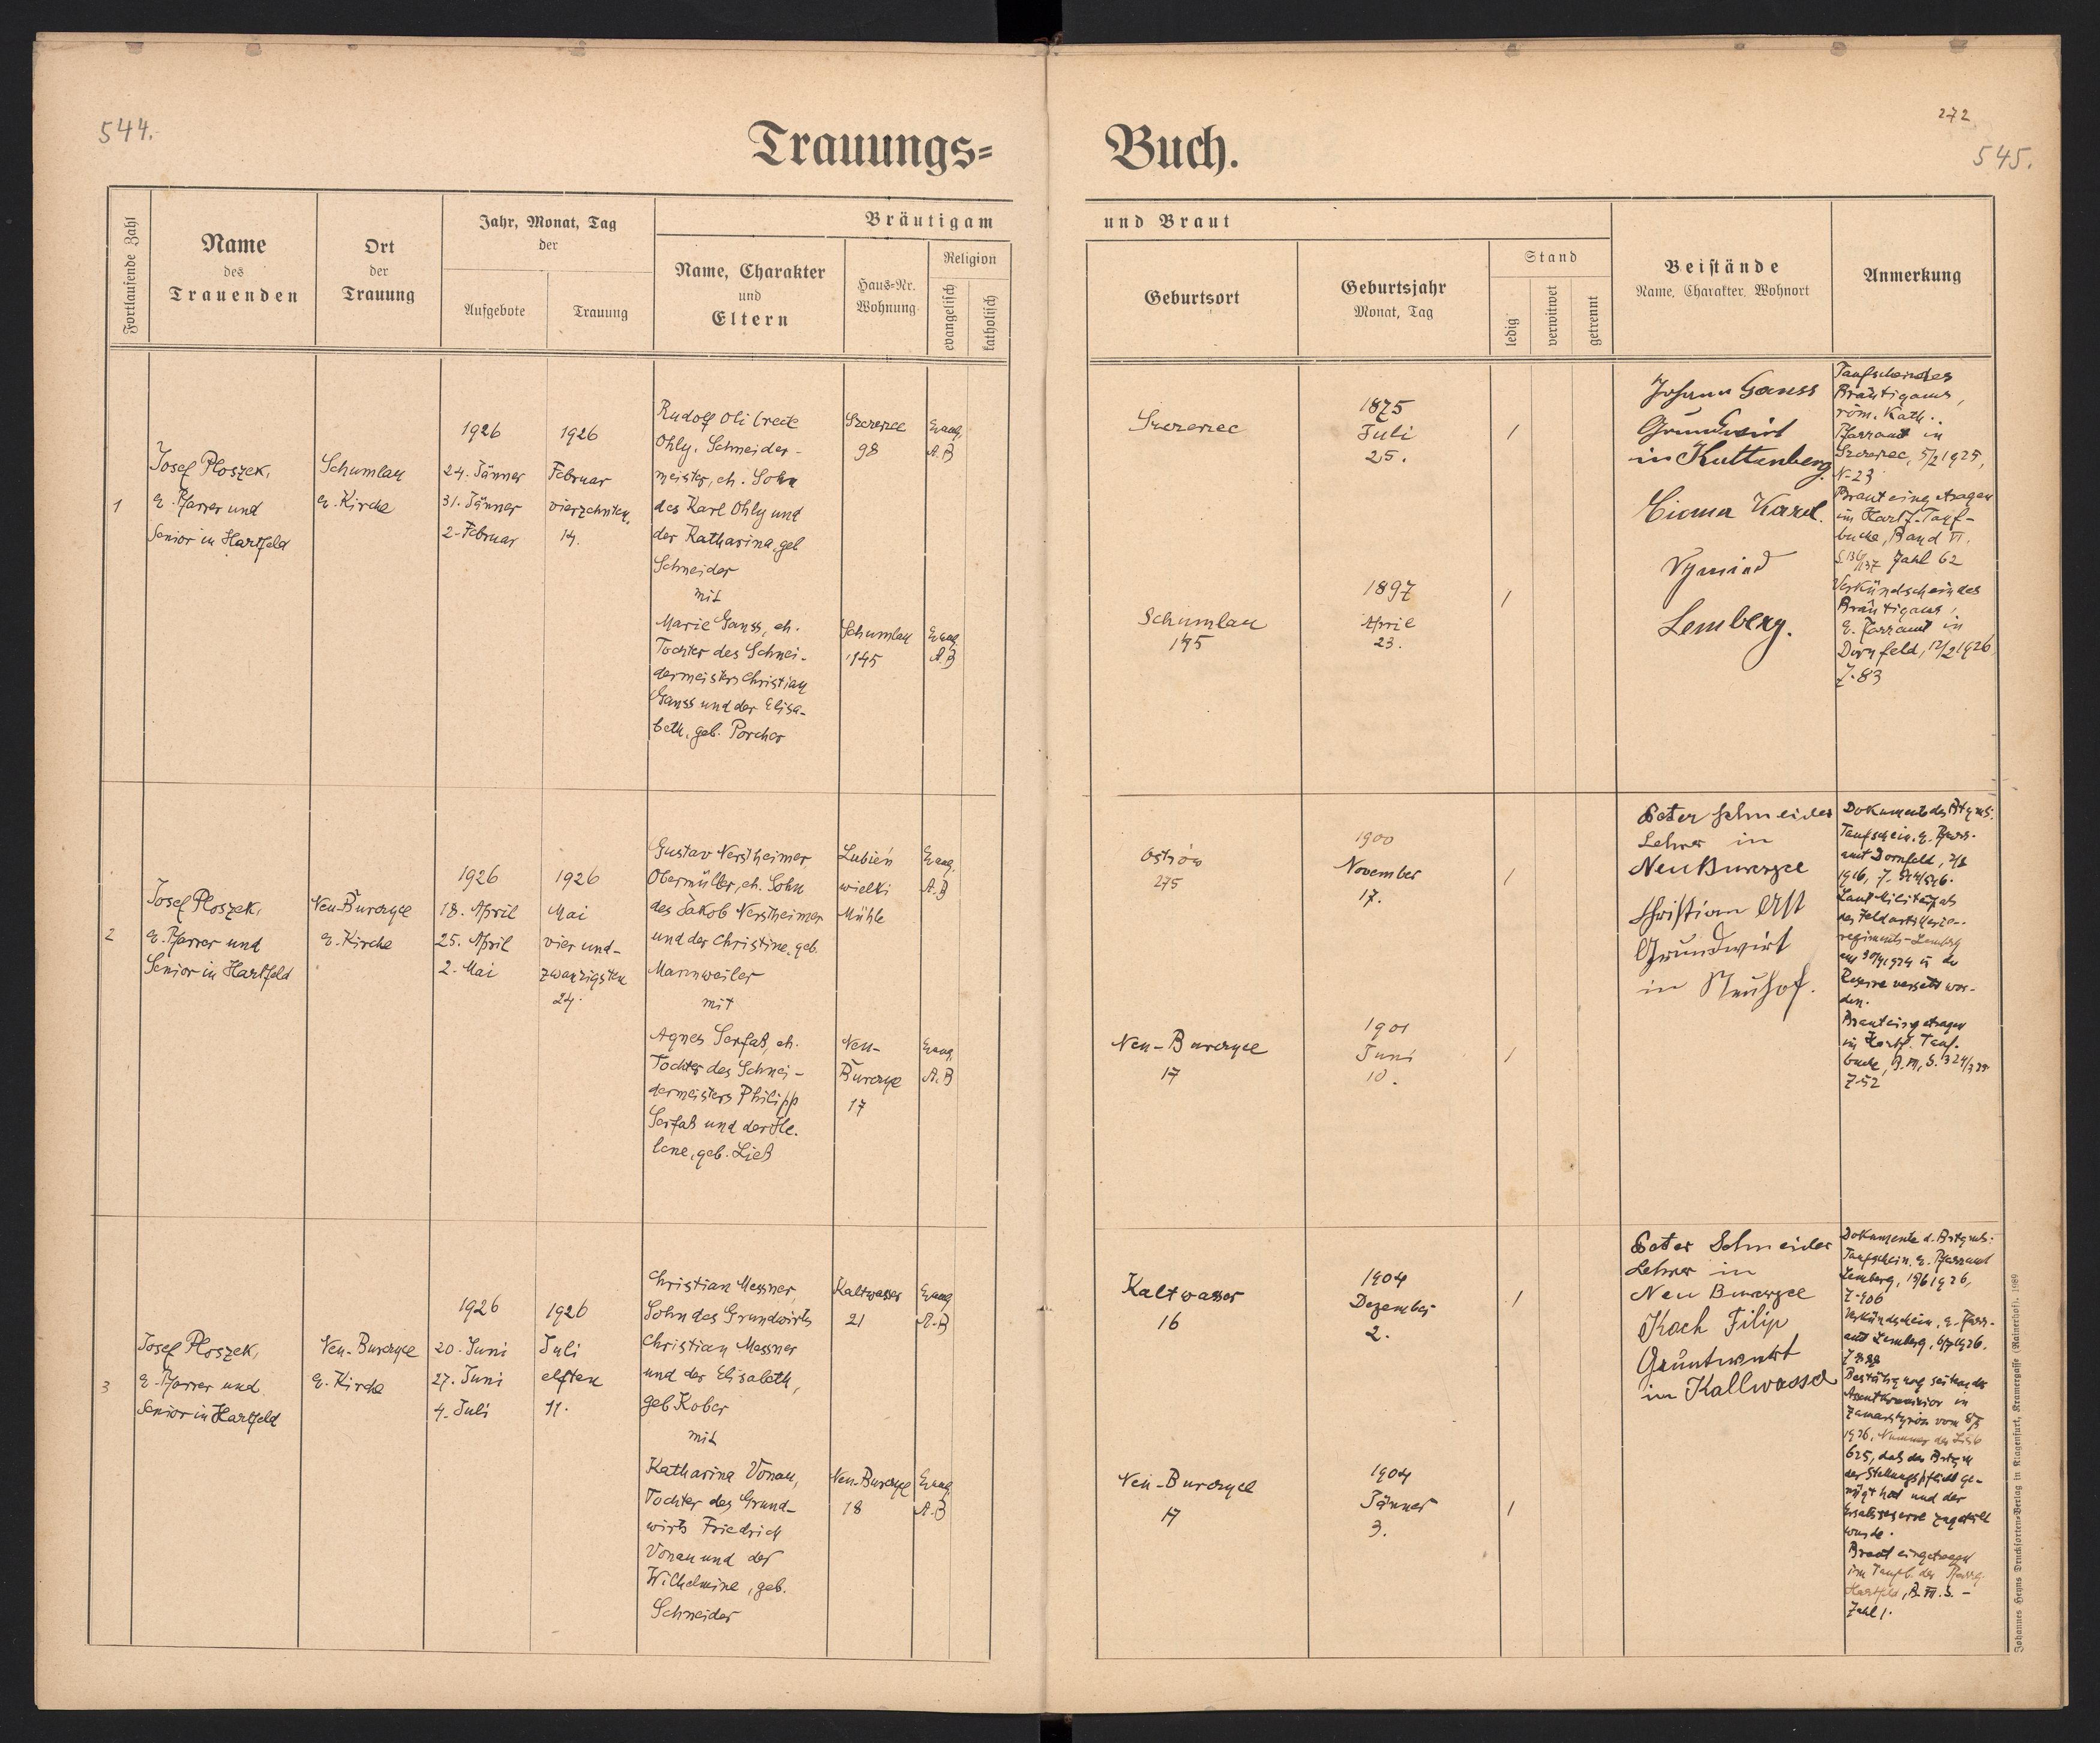 544.
272
545.
Trauungs=
Buch.
Fortlaufende Zahl
Name
des
Trauenden
Ort
der
Trauung
Jahr, Monat, Tag
der
Aufgebote
Trauung
Bräutigam
Name, Charakter
und
Eltern
Haus=Nr.
Wohnung
Religion
evangelisch
katholisch
und Braut
Geburtsort
Geburtsjahr
Monat, Tag
Stand
ledig
verwitwet
getrennt
Beistände
Name, Charakter, Wohnort
Anmerkung
1
Josef Ploszek,
E. Pfarrer und
Senior in Hartfeld
Schumlau
E. Kirche
1926
24. Jänner
31. Jänner
2. Februar
1926
Februar
vierzehnten,
14.
Rudolf
Ohly, Schneider-
meister, eh. Sohn
des Karl Ohly und
der Katharina, geb
Schneider
mit
Marie Ganss, eh.
Tochter des Schnei-
dermeisters Christian
Ganss und der Elisa-
beth, geb. Porcher
Szczerzec
98
Evang.
A.B
Schumlau
145
Evang.
A.B
Szczerzec
1875
Juli
25.
/
Schumlau
145
1897
April
23.
/
Johann Ganss
Grundwirt
in Kuttenberg.
Karl.
Lemberg.
Taufschein des
Bräutigams,
röm. Kath.
Pfarramt in
Szczerzec, 5/2 1925,
N-23
Braut eingetragen
im Hartf. Tauf-
buche, Band VI.
S. 136/137 Zahl 62
Verkündschein des
Bräutigams,
E. Pfarramt in
Dornfeld, 12/2 1926
Z. 83
2
Josef Ploszek,
E. Pfarrer und
Senior in Hartfeld
Neu-Burczyce
E. Kirche
1926
18. April
25. April
2. Mai
1926
Mai
vier und-
zwanzigsten
24.
Gustav Nerstheimer,
Obermüller, eh. Sohn
des Jakob Nerstheimer
und der Christine, geb.
Mannweiler
mit
Agnes Serfas, eh.
Tochter des Schnei-
dermeisters Philipp
Serfas und der He-
lene, geb. Lieb
Lubień
wielki
Mühle
Evang.
A.B
Neu-
Burczyce
17
Evang.
A.B
Ostrów
275
1900
November
17.
/
Neu-Burczyce
17
1901
Juni
10.
/
Peter Schneider
Lehrer in
Neu Burczyce
Christian Ast
Grundwirt
in Neuhof.
Dokumente des Btgms:
Taufschein, E. Pfarr-
amt Dornfeld,
Laut Militärpass
des Feldartillerie-
regiments-Lemberg
Reserve versetzt wor-
den.
Braut eingetragen
im Hartf. Tauf-
buche,
Z-52
3
Josef Ploszek,
E. Pfarrer und
Senior in Hartfeld
Neu-Burczyce
E. Kirche
1926
20. Juni
27. Juni
4. Juli
1926
Juli
elften
11.
Christian Messner,
Sohn des Grundwirts
Christian Messner
und der Elisabeth,
geb Kober
mit
Katharina Vonau,
Tochter des Grund-
wirts Friedrich
Vonau und der
Wilhelmine, geb.
Schneider
Kaltwasser
21
Evang
A.B
Neu-Burczyce
18
Evang.
A.B
Kaltwasser
16
1904
Dezember
2.
/
Neu-Burczyce
17
1904
Jänner
3.
/
Peter Schneider
Lehrer in
Neu Burczyce
Koch Filip
Gruntwirt
in Kallwasser
Dokumente d. Brtgms:
Taufschein, E. Pfarramt
Lemberg, 15/6 1926,
Z-906
Verkündschein, E. Pfarr-
amt Lemberg,
Bestätigung seitens der
in
vom
1926, Nummer der Liste
625, daß der Brtgm
der Stellungspflicht ge-
nügt hat und der
Ersatzreserve zugeteilt
wurde.
Braut eingetragen
im Taufb. der Pfarrg.
Hartfeld, B. VII. S. -
Zahl 1.
Johannes Heyns Drucksorten=Verlag in Klagenfurt, Kramergasse (Rainerhof). 1989